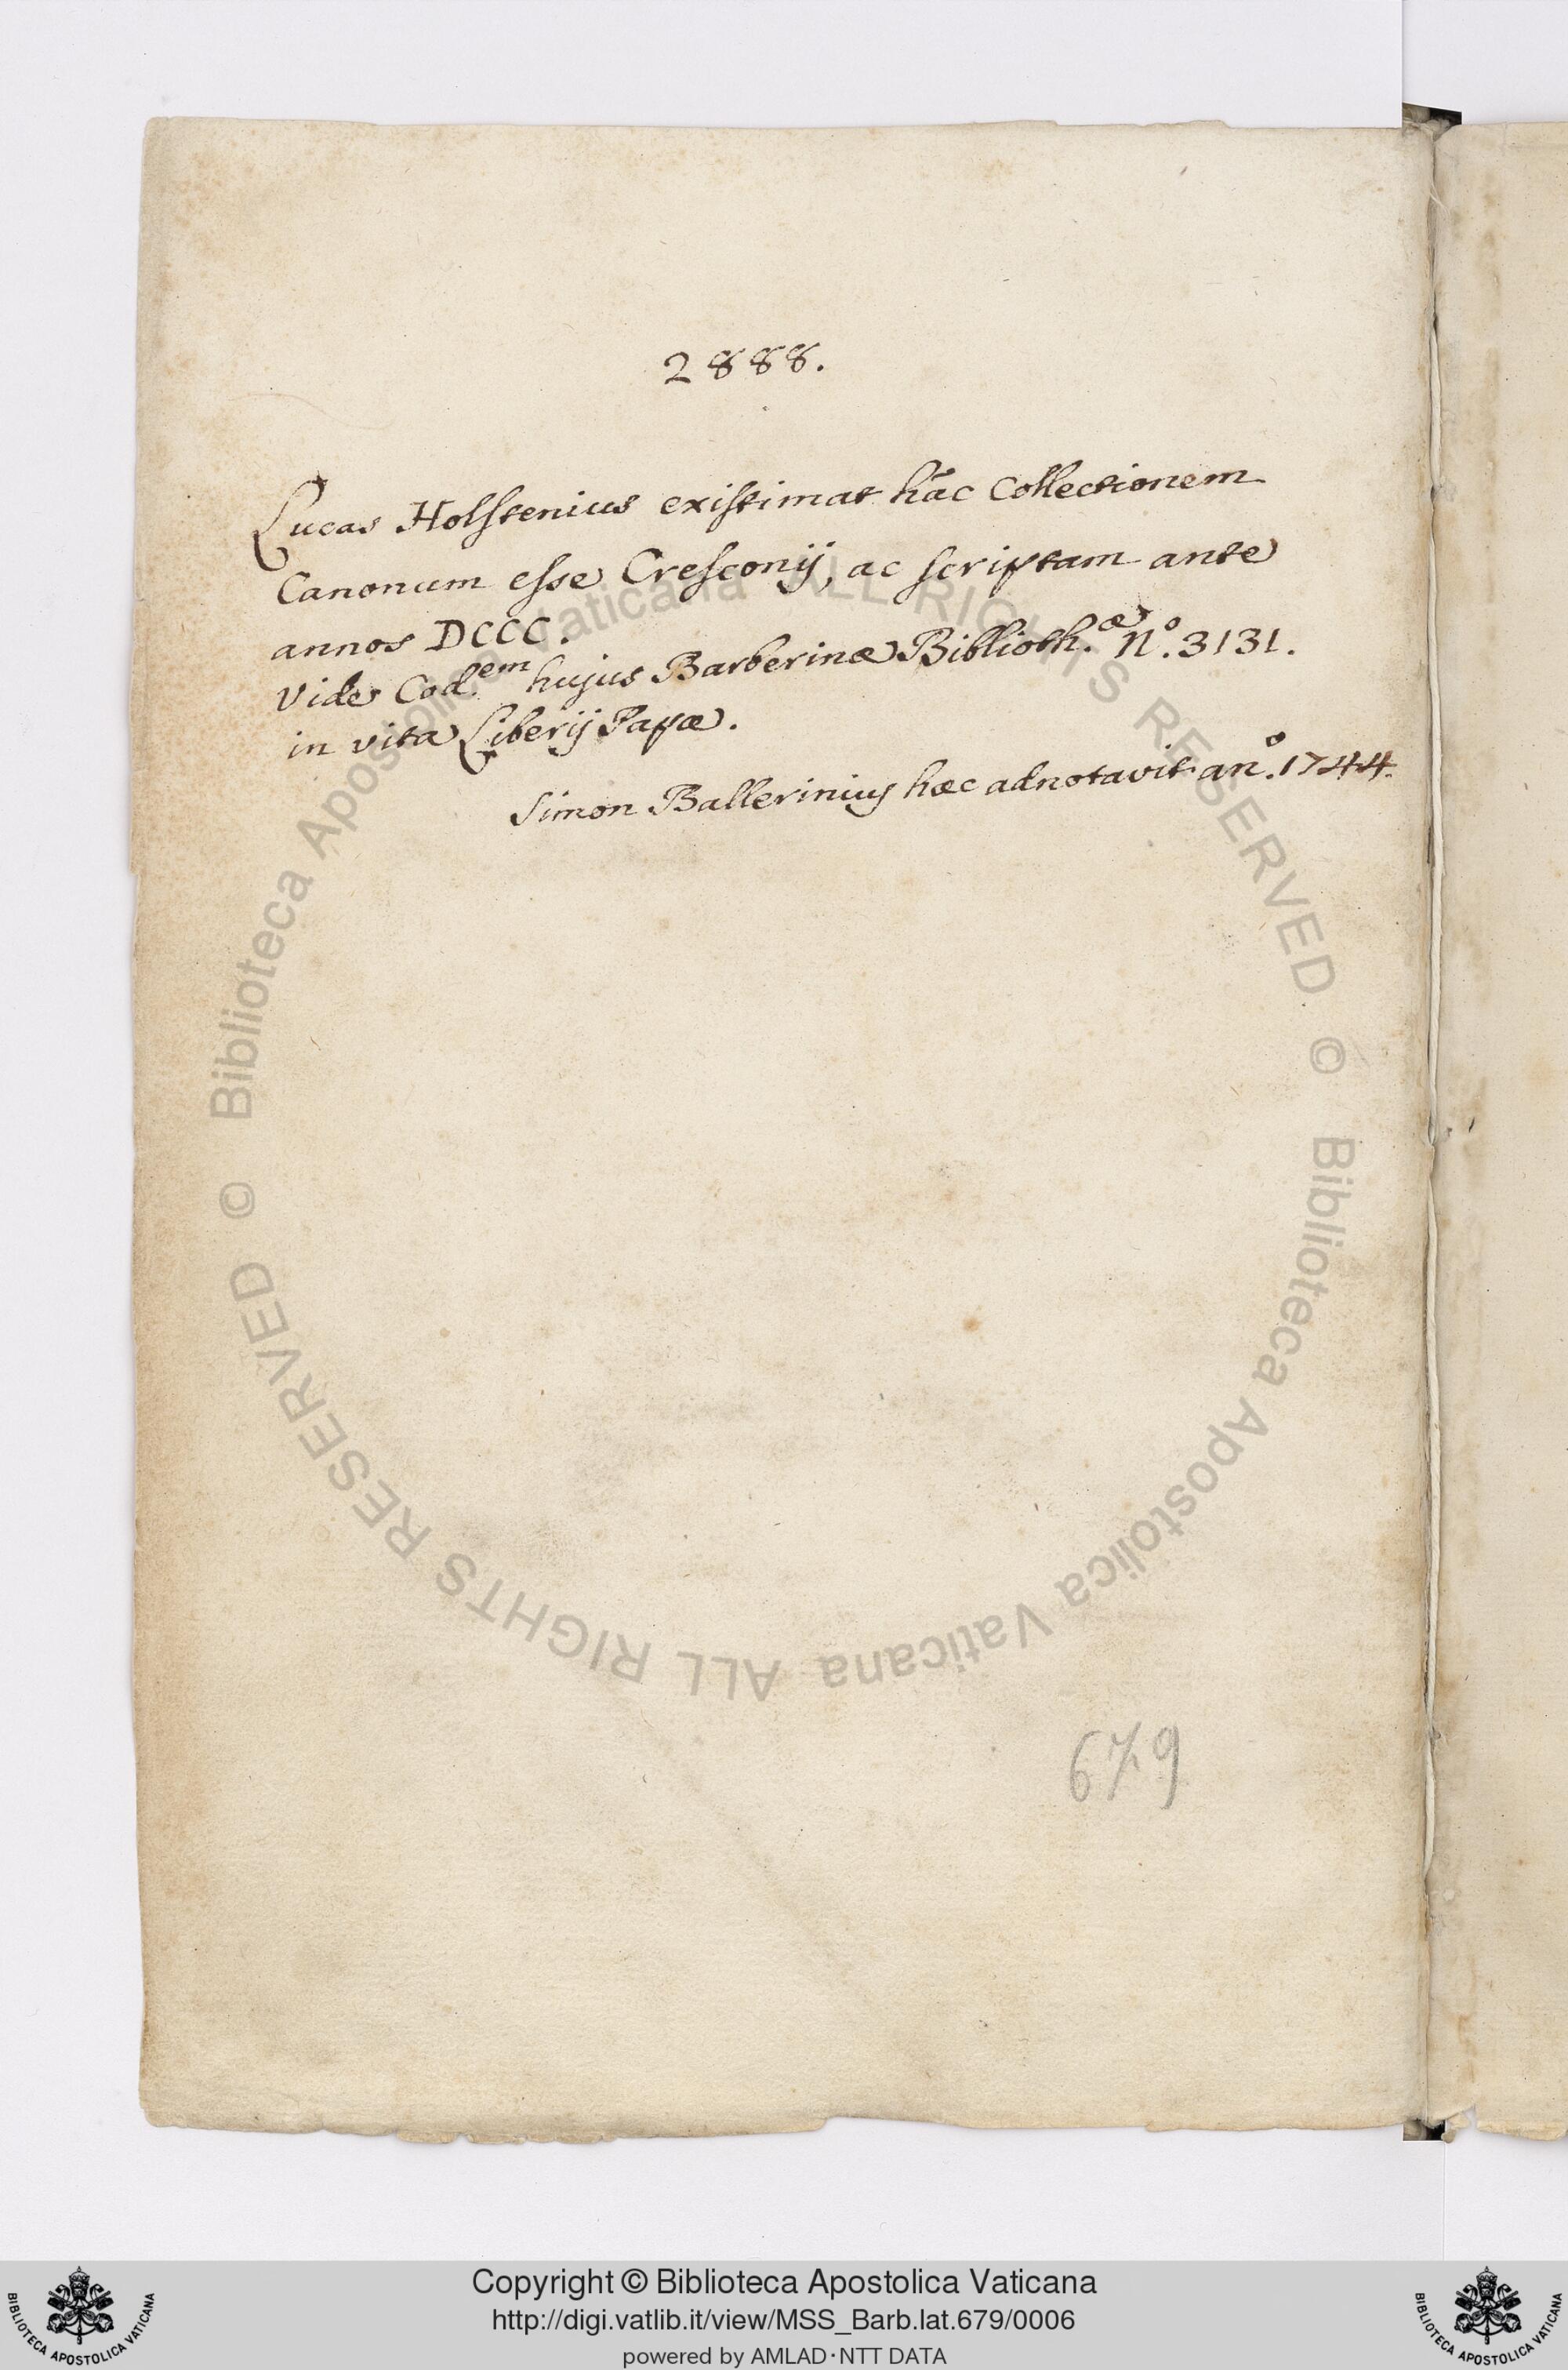 2888.
Lucas Holstenius existimat hāc Collectionem
Canonum esse Cresconij, ac scriptam ante
annos DCCC.
Vide Cod.em hujus Barberinæ Biblioth.æ N.o 3131.
in vita Liberij Papæ.
Simon Ballerinius hæc adnotavit an.o 1744.
679
© Biblioteca Apostolica Vaticana ALL RIGHTS RESERVED
© Biblioteca Apostolica Vaticana ALL RIGHTS RESERVED
BIBLIOTECA APOSTOLICA VATICANA
Copyright © Biblioteca Apostolica Vaticana
http://digi.vatlib.it/view/MSS_Barb.lat.679/0006
powered by AMLAD·NTT DATA
BIBLIOTECA APOSTOLICA VATICANA